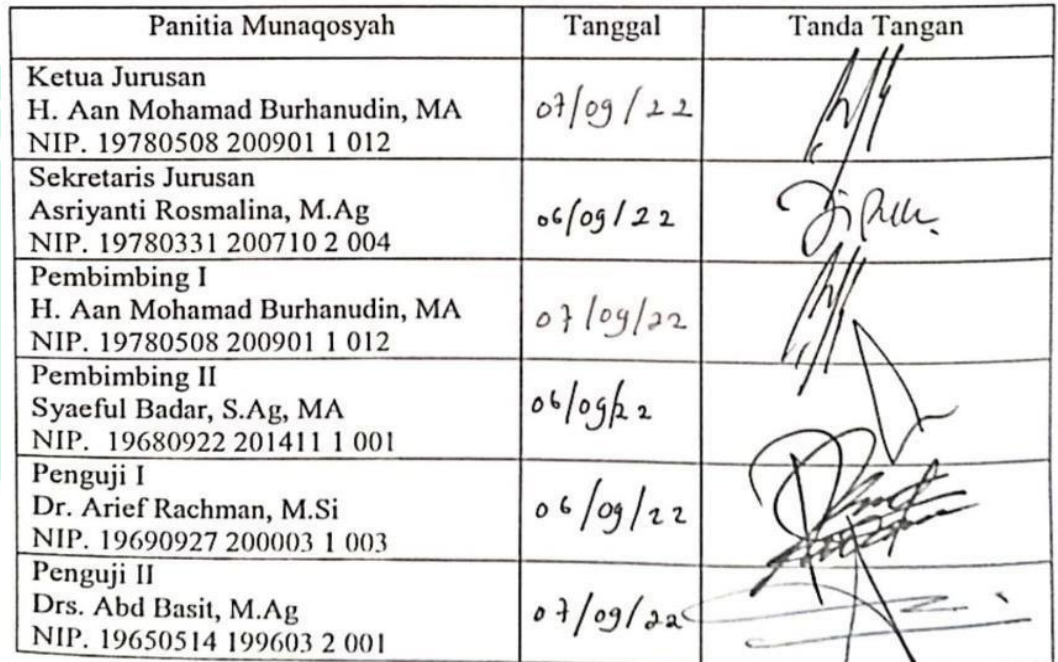 Panitia Munaqosyah Tanggal Tanda Tangan
Ketua Jurusan
H. Aan Mohamad Burhanudin, MA 07/09/22
NIP. 19780508 200901 1 012
Sekretaris Jurusan
Asriyanti Rosmalina, M.Ag 06/09/22
NIP. 19780331 200710 2 004
Pembimbing I
H. Aan Mohamad Burhanudin, MA 07/09/22
NIP. 19780508 200901 1 012
Pembimbing II
Syaeful Badar, S.Ag, MA 06/09/22
NIP. 19680922 201411 1 001
Penguji I
Dr. Arief Rachman, M.Si 06/09/22
NIP. 19690927 200003 1 003
Penguji II
Drs. Abd Basit, M.Ag 07/09/22
NIP. 19650514 199603 2 001